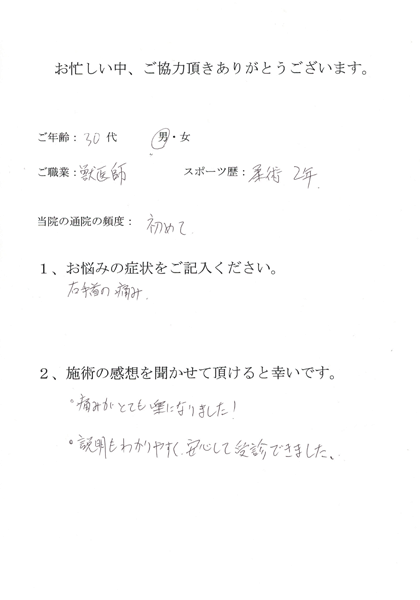 お忙しい中、ご協力頂きありがとうございます。
ご年齢：30代 男・女
ご職業：獣医師 スポーツ歴：柔術 2年
当院の通院の頻度：初めて
1、お悩みの症状をご記入ください。
右手首の痛み
2、施術の感想を聞かせて頂けると幸いです。
・痛みがとても楽になりました！
・説明もわかりやすく、安心して受診できました。